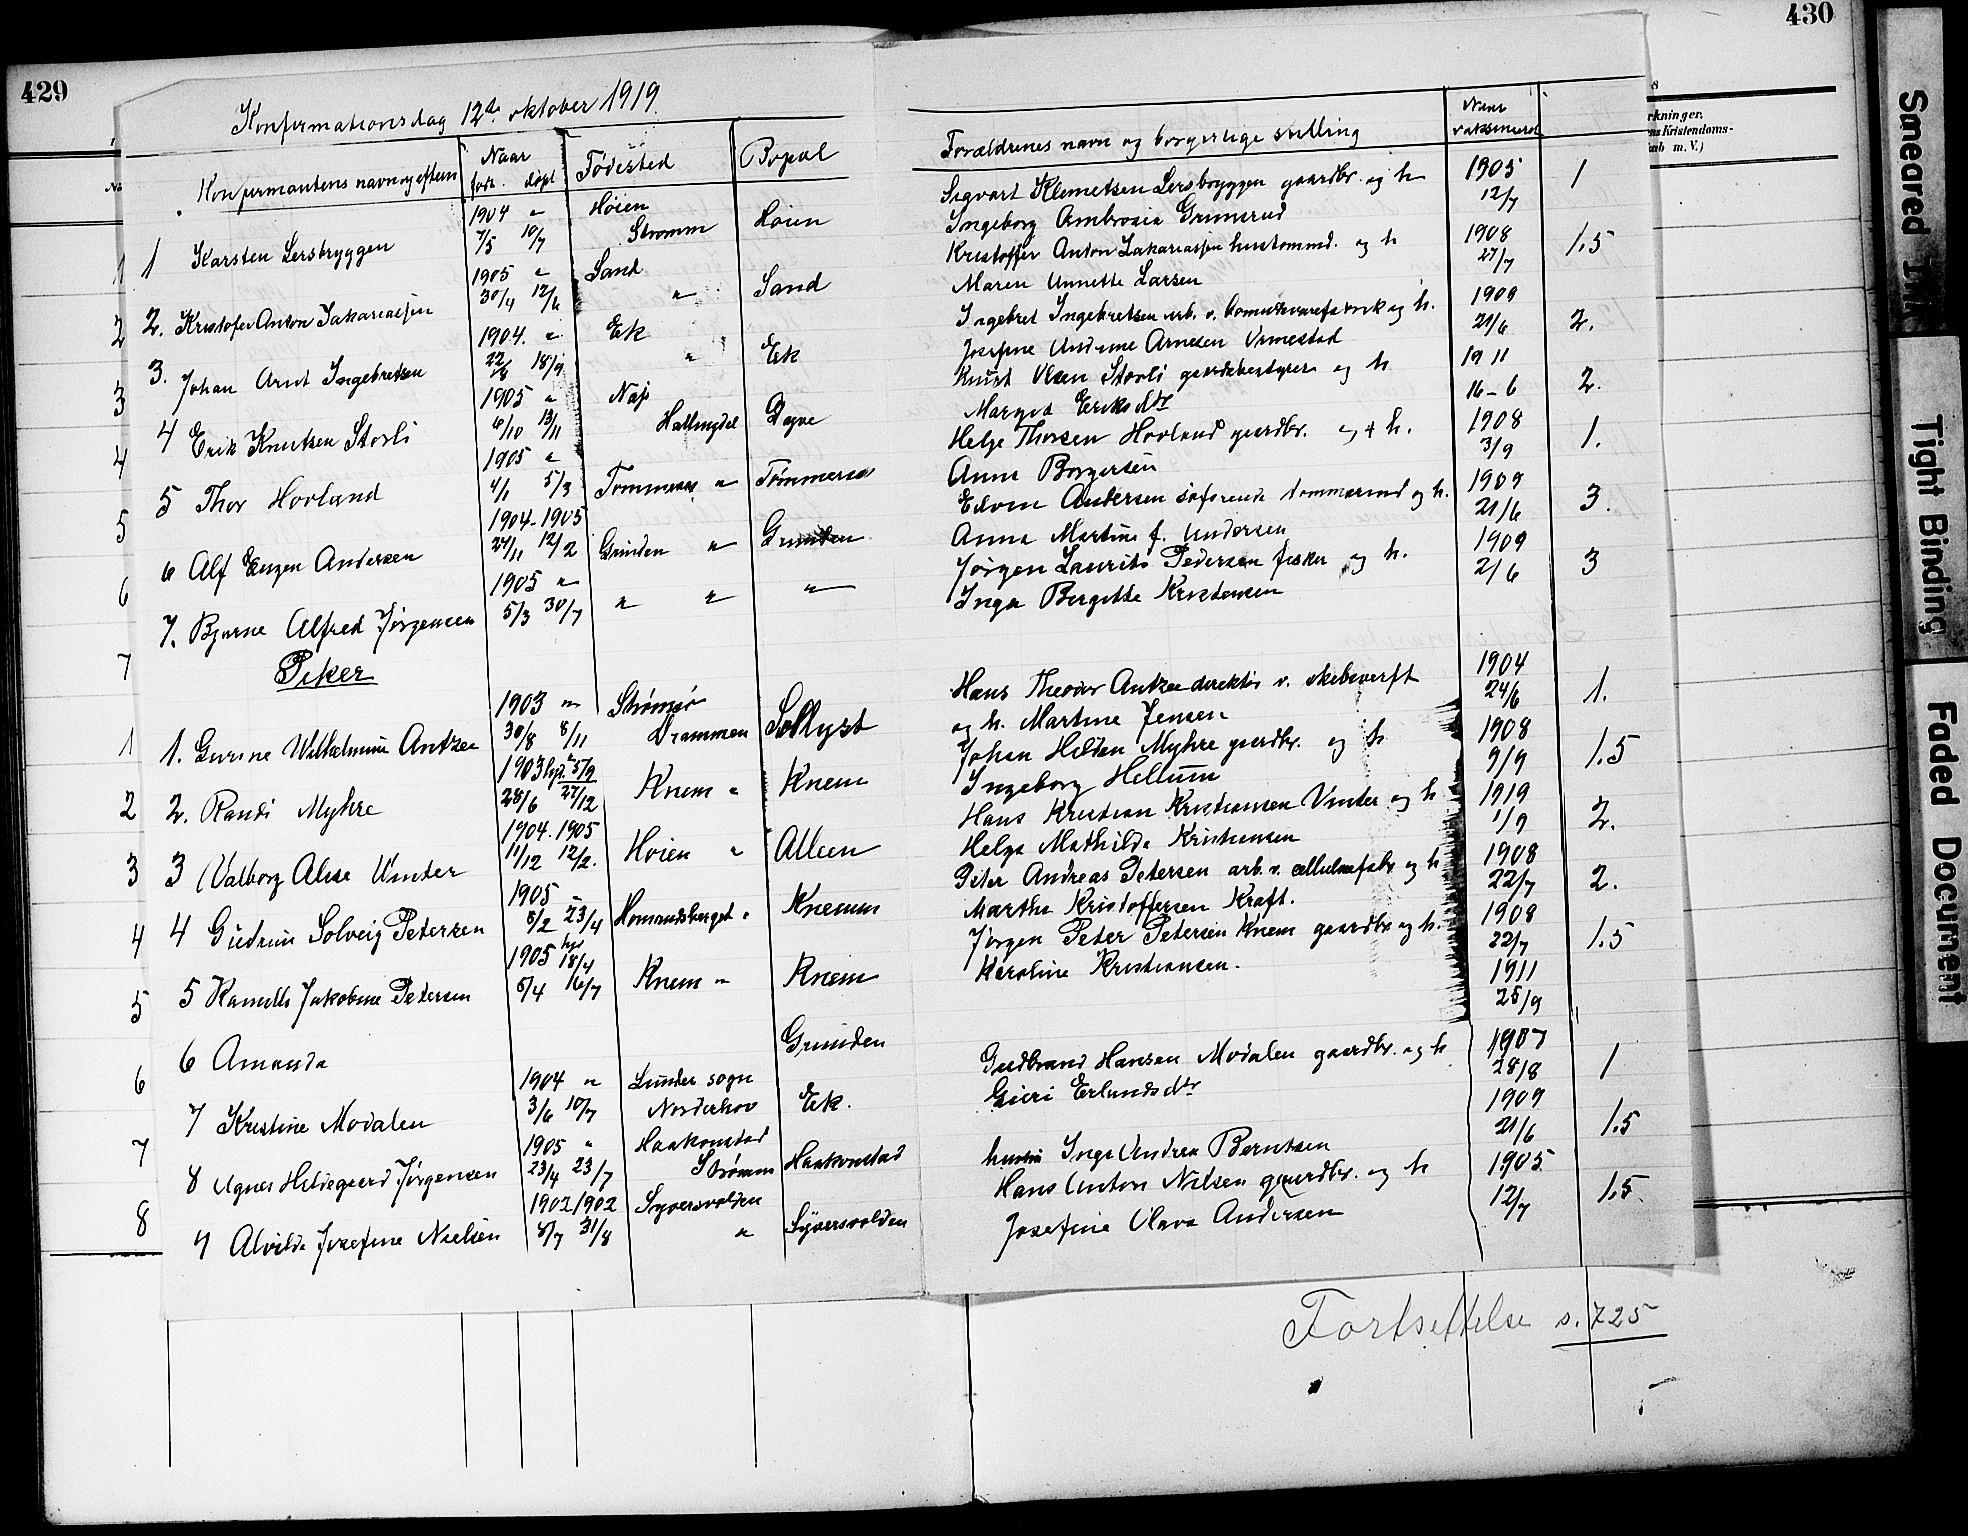 429
430
Konfirmationsdag 12te oktober 1919
Konfirmantens navn og eftern
Naar
født. døpt
Fødested
Bopæl
Forældrenes navn og borgerlige stilling
Naar
vaksinerd
1 1 Karsten Lersbryggen
1904 "
7/5 10/7
Høien
Strømm
Høien
Sigvart Klemetsen Lersbryggen gaardbr. og h
Ingeborg Ambrosia Grimsrud
1905
12/7
1
2 2. Kristofer Anton Sakariassen
1905 "
30/4 12/6
Sand
"
Sand
Kristoffer Anton Sakariassen hustømmd. og h
Maren Annette Larsen
1908
27/7
1.5
3 3. Johan Arnt Ingebretsen
1904. "
22/8 18/9
Ek
"
Ek
Ingebret Ingebretsen arb. v. h.
Josefine Andrine Arnesen Ormestad
1909
21/6
2.
4 4 Erik Knutsen Storli
1905 "
6/10 13/11
Næs
Hallingdal
Døpve
Knut Olsen Storli gaardsbestyrer og h
Margid Eriksdtr
1911
16-6
2.
5 5 Thor Hovland
1905 "
4/1 5/3
Tømmeraas "
Tømmeraas
Helge Thorsen Hovland gaardbr. og h.
Anne Borgersen
1908
3/9
1.
6 6 Alf Eugen Andersen
1904-1905
27/11 12/2
Grunden "
Grunden
Edvin Andersen sjøfarende tømmermd og h.
Anna Martine f. Andersen
1909
21/6
3.
7 7. Bjarne Alfred Jørgensen
1905 "
5/3 30/7
" "
"
Jørgen Laurits Pedersen fisker og h.
Inga Bergitte Kristensen
1909
2/6
3
Piker
1 1. Gurine Wilhelmine Antzee
1903 "
30/8 8/11
Strømsø
Drammen
Sollyst
Hans Theodor Antzee direktør v. skibsverft
og h. Martine Jensen
1904
24/6
1.
2 2. Randi Myhre
1903 hjd. 5/9
28/6 27/12
Knem "
Knem
Johan Helden Myhre gaardbr. og h
Ingeborg Hellum
1908
9/9
1.5
3 3 Valborg Alise Vinter
1904. 1905
11/12 12/2.
Høien "
Alleen
Hans Kristian Kristiansen Vinter og h
Helga Mathilde Kristiansen
1919
1/9
2.
4 4 Gudrun Solveig Petersen
1905 "
5/2 23/4
Homandsberget "
Knemm
Peter Andreas Petersen arb. v. cellulosefabr. og h
Martha Kristoffersen Kraft.
1908
22/7
2.
5 5 Kamilla Jakobine Petersen
1905 hjd 18/4
5/4 16/7
Knem "
Knem
Jørgen Peter Petersen Knem gaardbr og h.
Karoline Kristiansen.
1908
22/7
1.5
6 6 Amanda
Grunden
1911
25/9
7 7 Kristine Modalen
1904 "
3/6 10/7
Lunder sogn
Norderhov
Ek.
Gudbrand Hansen Modalen gaardbr. og h
Guri Erlandsdtr
1907
28/8
1
8 8 Agnes Hildegaard Jørgensen
1905 "
23/4 23/7
Haakonstad
Strømm
Haakonstad
hustru Inga Andrea Berntsen
1909
21/6
1.5
9 Alvilde Josefine Nielsen
1902 1902
8/7 31/8
Syversvolden
"
Syversvolden
Hans Anton Nilsen gaardbr. og h
Josefine Olava Andersen
1905
12/7
1.5
Fortsettelse s. 725
Smeared Ink
Tight Binding
Faded Document